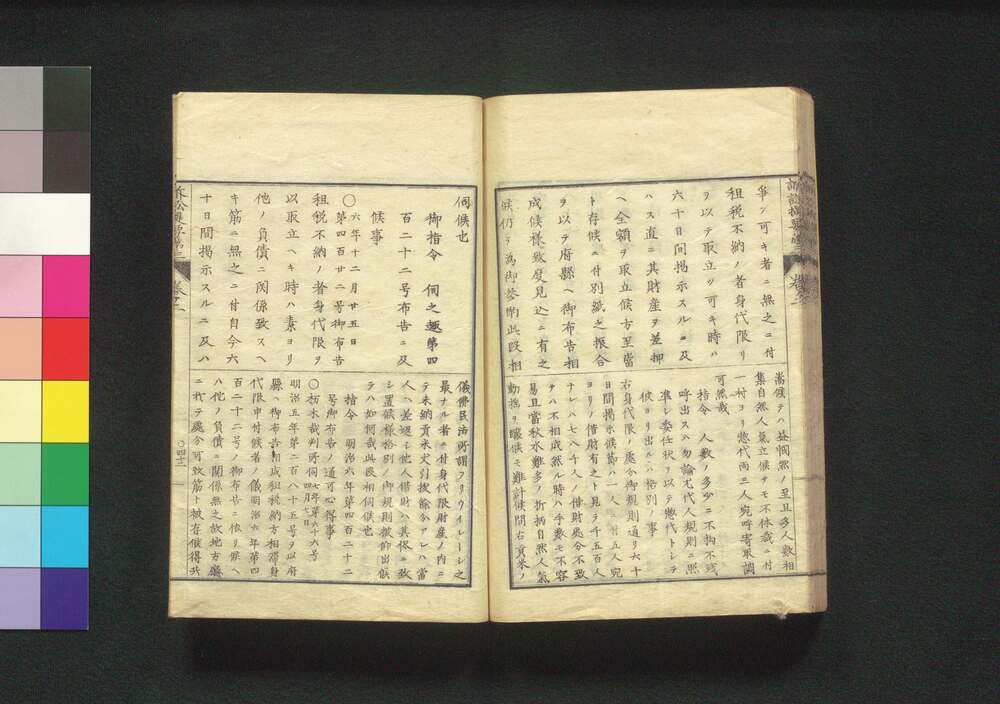 争フ可キ者ニ無之ニ付
租税不納ノ者身代限リ
ヲ以テ取立ツ可キ時ハ
六十日間掲示スルニ及
ハス直ニ其財産ヲ差押
ヘ全額ヲ取立候方至当
ト存候ニ付別紙之振合
ヲ以テ府縣ヘ御布告相
成候様致度見込ニ有之
候仍テ為御参照此段相
嵩候テハ昼間然ノ至且多人数相
集自然人氣立候ヲモ不休哉ニ付
一村ヨリ惣代両三人宛呼寄取調
可然哉
指令 人数ノ多少ニ不拘不残
呼出スハ勿論尤代人規則ニ照
準シ委任状ヲ以テ惣代トシテ
彼ヨリ出ルハ格別ノ事
右身代限ノ処分御規則通リ六十
日間掲示候節ハ一人ニ付五人宛
ヨリノ借財有之ト見テ千五百人
ナレハ七八千人ノ借財処分不致
テハ不相成然ル時ハ手数モ不容
易且當秋水難多ノ折柄自然人氣
動揺ヲ醸候モ難計候間右貢米ノ
訴訟提要第三 巻之一
伺候也
御指令 伺之趣第四
百二十二号布告ニ及
候事
〇六年十二月廿五日
第四百廿二号御布告
租税不納ノ者身代限ヲ
以取立ヘキ時ハ素ヨリ
他ノ負債ニ関係致スヘ
キ筋ニ無之ニ付自今六
十日間掲示スルニ及ハ
儀佛民法所謂フリウイレージノ之
最ナル者ニ付身代限財産ノ内ニ
テ未納貢米丈引抜餘分アレハ當
人ヘ差返シ他人借財ハ其侭ニ致
シ置候様格別ノ御規則被仰出候
テハ如何哉此段相伺候也
指令 明治六年第四百二十二
号御布告ノ通可心得事
〇栃木裁判所伺七年第六十六号四月七日
明治五年第二百八十五号ヲ以府
縣ヘ御布告相成租税納方相滞身
代限申付候者ノ儀明治六年第四
百二十二号ノ御布告ニ依リ候ヘ
ハ他ノ負債ニ関係無之故地方廳
ニ於テ處分可致筋ト被存候得共
〇四十二